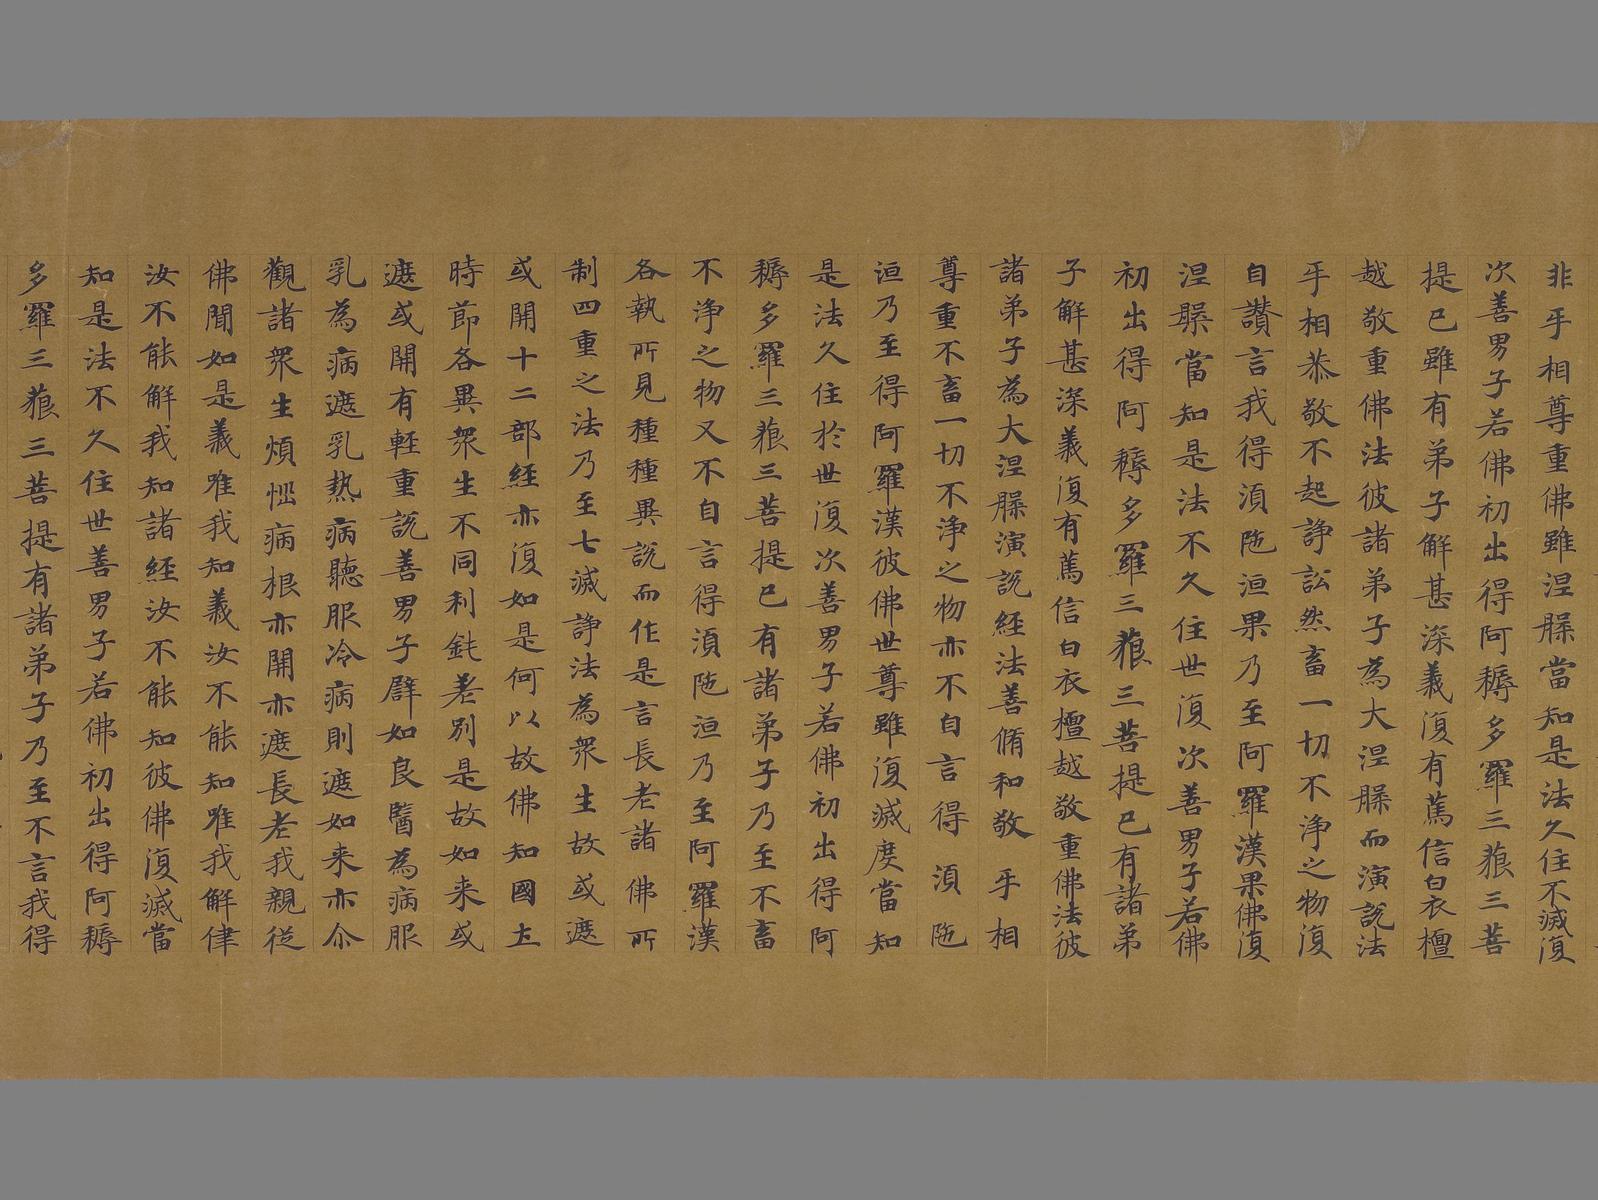 非乎相尊重佛雖涅槃當知是法久住不滅復
次善男子若佛初出得阿耨多羅三藐三菩
提已雖有弟子解甚深義復有篤信白衣檀
越敬重佛法彼諸弟子為大涅槃而演說法
乎相恭敬不起諍訟然畜一切不淨之物復
自讚言我得湏陁洹果乃至阿羅漢果佛復
涅槃當知是法不久住世復次善男子若佛
初出得阿耨多羅三藐三菩提已有諸弟
子解甚深義復有篤信白衣檀越敬重佛法彼
諸弟子為大涅槃演說經法善脩和敬乎相
尊重不畜一切不淨之物亦不自言得湏陁
洹乃至得阿羅漢彼佛世尊雖復滅度當知
是法久住於世復次善男子若佛初出得阿
耨多羅三藐三菩提已有諸弟子乃至不畜
不淨之物又不自言得湏陁洹乃至阿羅漢
各執所見種種異說而作是言長老諸佛所
制四重之法乃至七滅諍法為眾生故或遮
或開十二部經亦復如是何以故佛知國土
時節各異眾生不同利鈍差別是故如来或
遮或開有輕重說善男子譬如良醫為病服
乳為病遮乳熱病聽服冷病則遮如来亦尒
觀諸眾生煩惱病根亦開亦遮長老我親從
佛聞如是義唯我知義汝不能知唯我解律
汝不能解我知諸經汝不能知彼佛復滅當
知是法不久住世善男子若佛初出得阿耨
多羅三藐三菩提有諸弟子乃至不言我得